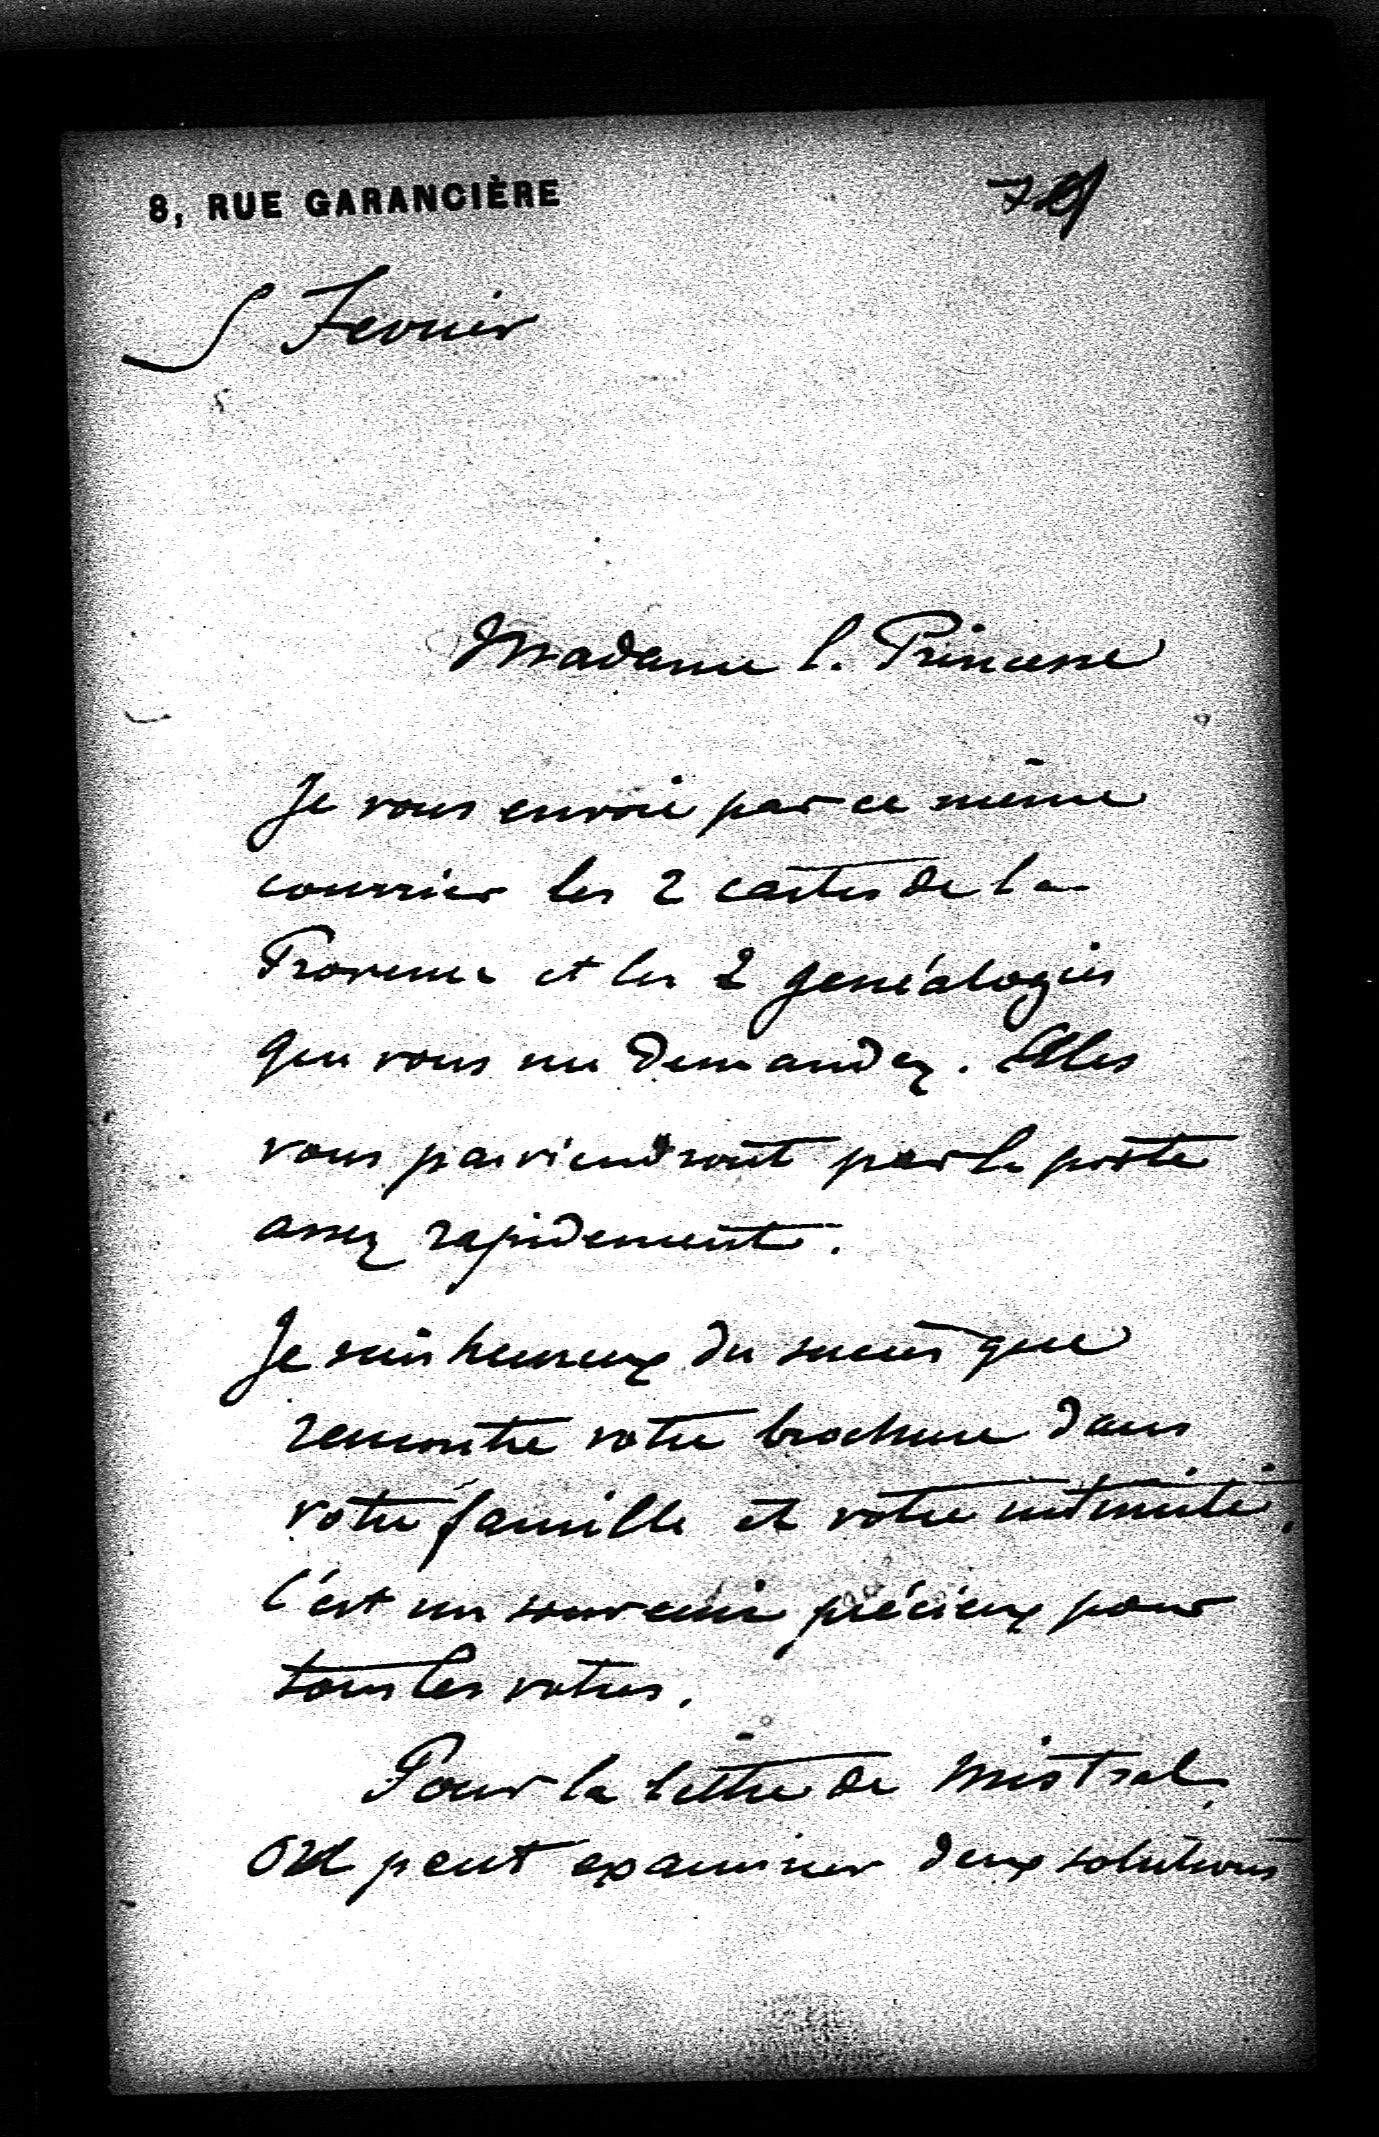 8, RUE GARANCIÈRE
5 Fevrier
Madame la Princesse
Je vous envoie par ce même
courrier les 2 cartes de la
Provence et les 2 généalogies
que vous me demandez. Elles
vous parviendront par la poste
assez rapidement.
Je suis heureux du succès que
rencontre votre brochure dans
votre famille et votre intimité.
C'est un souvenir précieux pour
tous les votres.
Pour la lettre de Mistral,
on peut examiner deux solutions